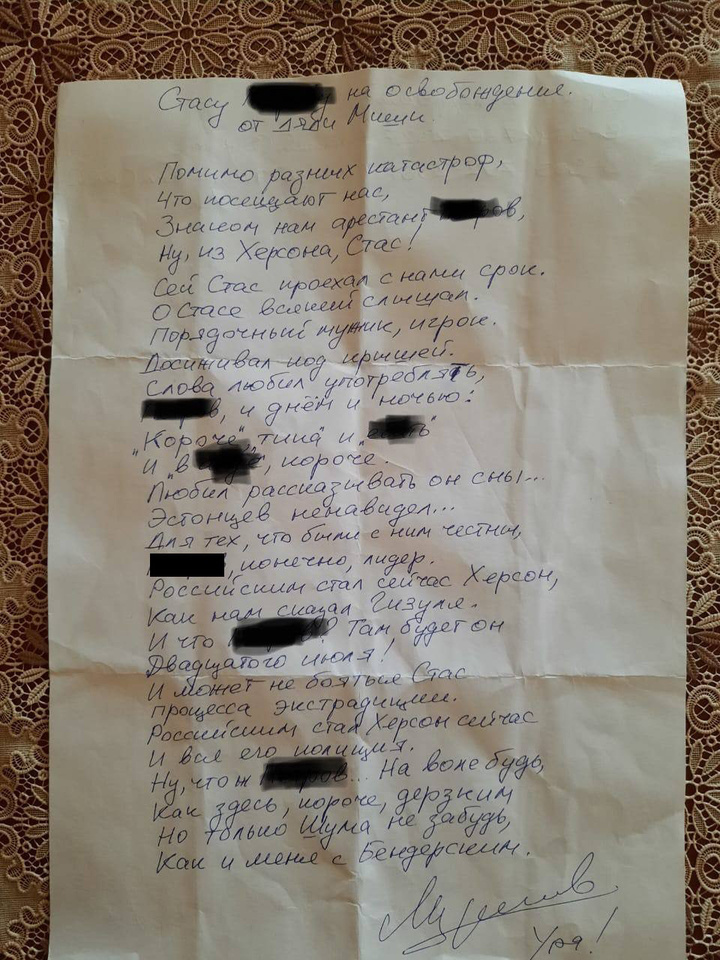 Стасу на освобождение.
от дяди Миши
Помимо разных катастроф,
Что посещают нас,
Знаком нам арестант ров,
Ну, из Херсона, Стас!
Сей Стас проехал с нами срок.
О Стасе всякий слыщал.
Порядочный мужик, игрок.
Досиживал под крышей.
Слова любил употреблять,
в, и днём и ночью:
„Короче", „типа" и „ ть"
И „в , короче.
Любил рассказывать он сны...
Эстонцев ненавидел...
Для тех, что были с ним честны,
, конечно, лидер.
Российским стал сейчас Херсон,
Как нам сказал Гизуля.
И что ? Там будет он
Двадцатого июля!
И может не бояться Стас
процесса экстрадиции.
Российским стал Херсон сейчас
И вся его полиция.
Ну, что ж ров... На воле будь,
Как здесь, короче, дерзким
Но только Шума не забудь,
Как и меня с Бендерским.
Ура!